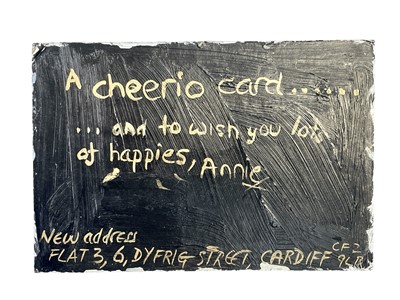 A cheerio card......
... and to wish you lots
of happies, Annie
New address
FLAT 3, 6, DYFRIG STREET, CARDIFF CF2